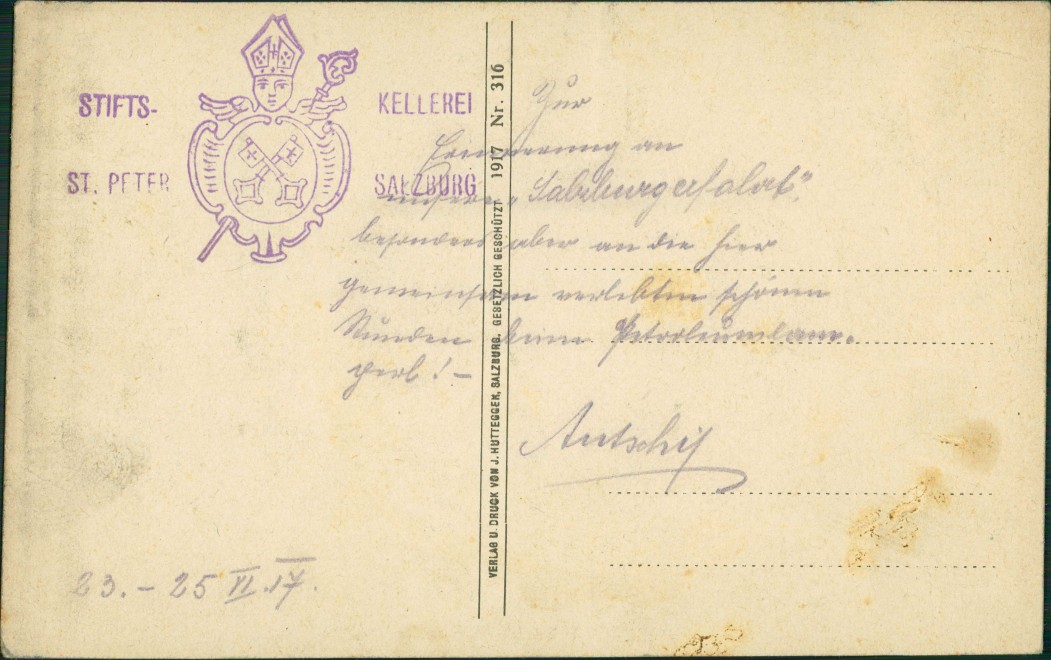 STIFTS- KELLEREI
ST. PETER SALZBURG
Zur
Erinnerung an
unsere „Salzburgerfahrt“,
besonders aber an die hier
gemeinsam verlebten schönen
Stunden deine Petroleumlam-
perl! –
23. – 25 VI. 17.
VERLAG U. DRUCK VON J. HUTTEGGER, SALZBURG. GESETZLICH GESCHÜTZT 1917 Nr. 316